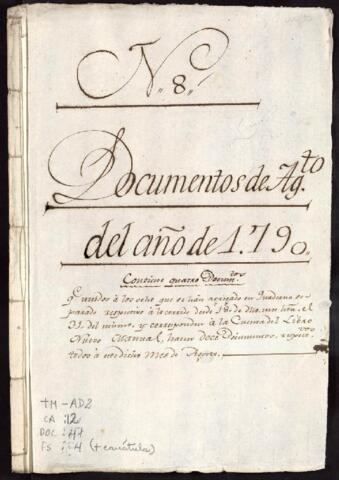 N. 8.
Documentos de Ag.to
del año de 1.790.
Contiene quatro Docum.tos
que unidos à los ocho que se han agregado en Quaderno se-
parado respectivo à lo corrido desde 1.º de hasta el
31. del mismo, y corresponden à la Cuenta del Libro
Nuevo Manual, hacen doce Documentos, respec-
tados à este dicho Mes de Agosto.
TM - AD2
CA : 12
DOC : 47
FS : 4 (+ carátula)